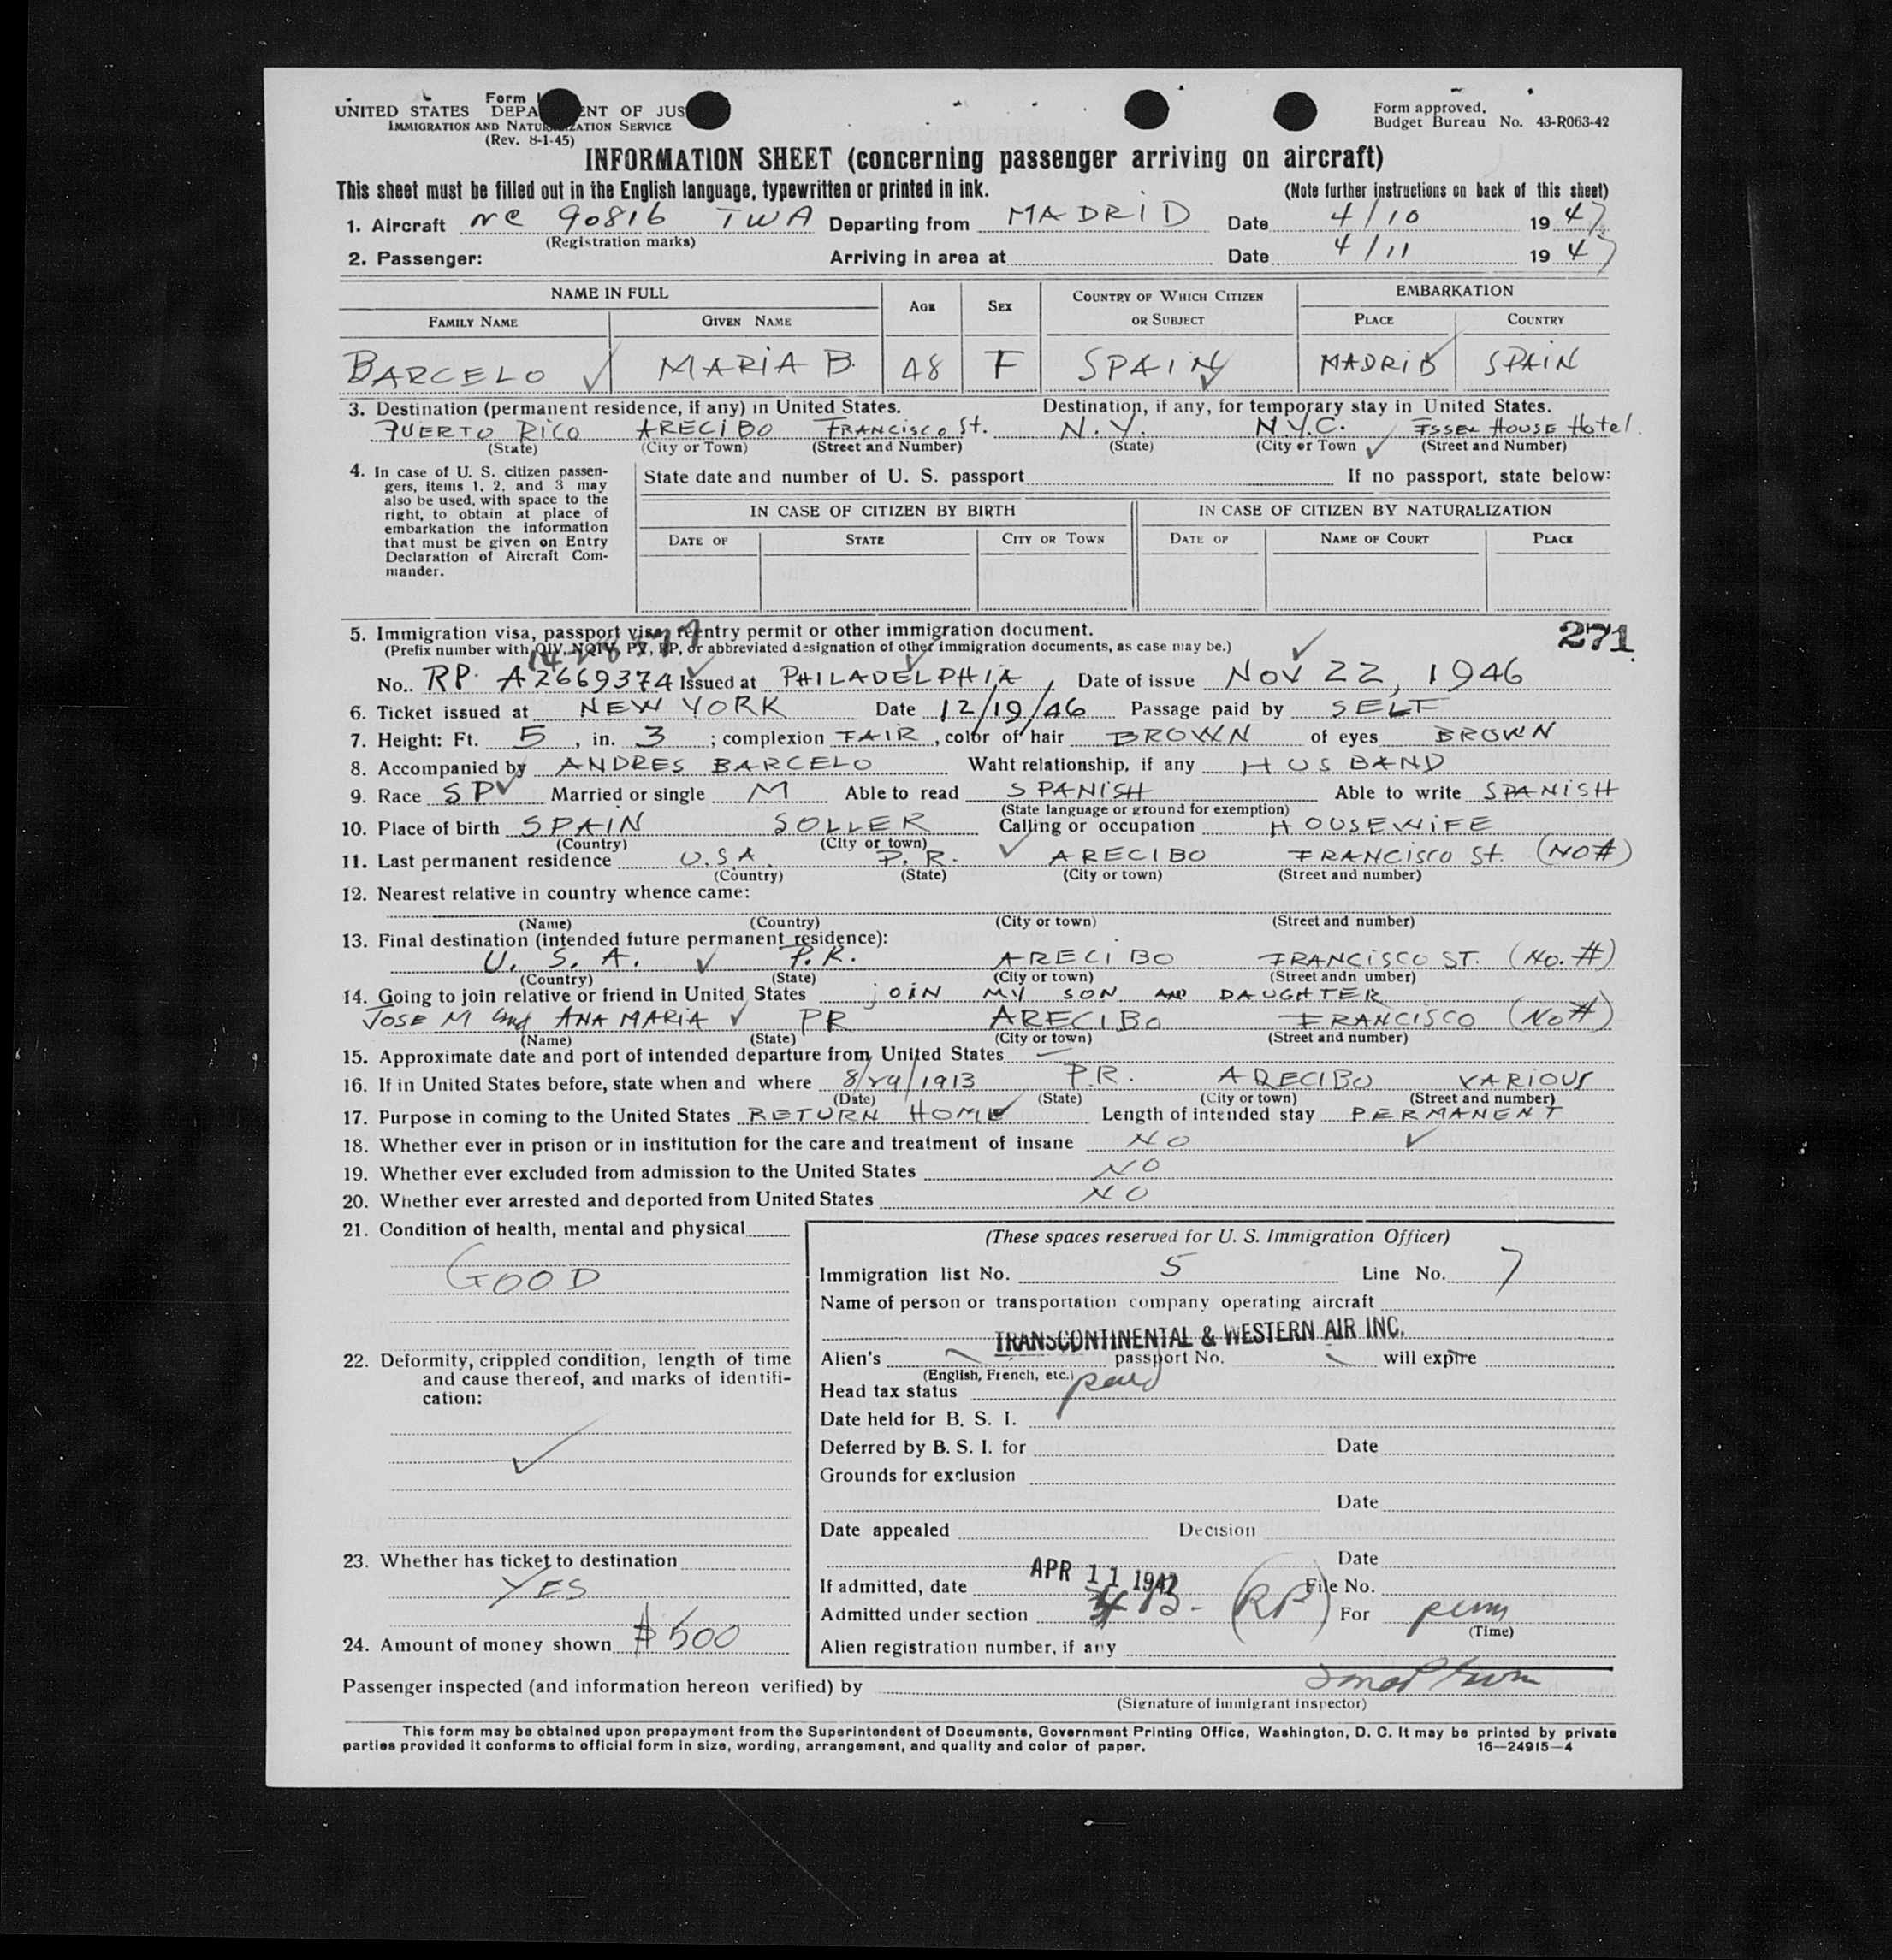 Form
UNITED STATES DEPA ENT OF JUS
IMMIGRATION AND NATURALIZATION SERVICE
(Rev. 8-1-45)
Form approved.
Budget Bureau No. 43-R063-42
INFORMATION SHEET (concerning passenger arriving on aircraft)
This sheet must be filled out in the English language, typewritten or printed in ink. (Note further instructions on back of this sheet)
1. Aircraft NC 90816 TWA Departing from MADRID Date 4/10 1947
(Registration marks)
2. Passenger: Arriving in area at Date 4/11 1947
NAME IN FULL AGE SEX COUNTRY OF WHICH CITIZEN OR SUBJECT EMBARKATION
FAMILY NAME GIVEN NAME PLACE COUNTRY
BARCELO MARIA B. 48 F SPAIN MADRID SPAIN
3. Destination (permanent residence, if any) in United States. Destination, if any, for temporary stay in United States.
PUERTO RICO ARECIBO FRANCISCO St. N.Y. N.Y.C. ESSEX HOUSE Hotel.
(State) (City or Town) (Street and Number) (State) (City or Town (Street and Number)
4. In case of U. S. citizen passen-
gers, items 1, 2, and 3 may
also be used, with space to the
right, to obtain at place of
embarkation the information
that must be given on Entry
Declaration of Aircraft Com-
mander.
State date and number of U. S. passport If no passport, state below:
IN CASE OF CITIZEN BY BIRTH IN CASE OF CITIZEN BY NATURALIZATION
DATE OF STATE CITY OR TOWN DATE OF NAME OF COURT PLACE
5. Immigration visa, passport visa, reentry permit or other immigration document.
(Prefix number with QIV, NQIV, PV, RP, or abbreviated designation of other immigration documents, as case may be.)
271
No.. RP. A2669374 Issued at PHILADELPHIA, Date of issue NOV 22, 1946
6. Ticket issued at NEW YORK Date 12/19/46 Passage paid by SELF
7. Height: Ft. 5, in. 3; complexion FAIR, color of hair BROWN of eyes BROWN
8. Accompanied by ANDRES BARCELO Waht relationship, if any HUSBAND
9. Race SP Married or single M Able to read SPANISH Able to write SPANISH
(State language or ground for exemption)
10. Place of birth SPAIN SOLLER Calling or occupation HOUSEWIFE
(Country) (City or town)
11. Last permanent residence U.S.A. P.R. ARECIBO FRANCISCO St. (NO#)
(Country) (State) (City or town) (Street and number)
12. Nearest relative in country whence came:
(Name) (Country) (City or town) (Street and number)
13. Final destination (intended future permanent residence):
U. S. A. P.R. ARECIBO FRANCISCO ST. (No. #)
(Country) (State) (City or town) (Street andn umber)
14. Going to join relative or friend in United States jOiN MY SON AND DAUGHTER
JOSE M and ANA MARIA PR ARECIBO FRANCISCO (No#)
(Name) (State) (City or town) (Street and number)
15. Approximate date and port of intended departure from United States
16. If in United States before, state when and where 8/29/1913 P.R. ARECIBO VARIOUS
(Date) (State) (City or town) (Street and number)
17. Purpose in coming to the United States RETURN HOME Length of intended stay PERMANENT
18. Whether ever in prison or in institution for the care and treatment of insane NO
19. Whether ever excluded from admission to the United States NO
20. Whether ever arrested and deported from United States NO
21. Condition of health, mental and physical
GOOD
22. Deformity, crippled condition, length of time
and cause thereof, and marks of identifi-
cation:
23. Whether has ticket to destination
YES
24. Amount of money shown $500
(These spaces reserved for U. S. Immigration Officer)
Immigration list No. 5 Line No. 7
Name of person or transportation company operating aircraft
TRANSCONTINENTAL & WESTERN AIR INC.
Alien's passport No. will expire
(English, French, etc.)
Head tax status paid
Date held for B. S. I.
Deferred by B. S. I. for Date
Grounds for exclusion
Date
Date appealed Decision
Date
If admitted, date APR 11 1947 File No.
Admitted under section 4B- (RP) For perm
(Time)
Alien registration number, if any
Passenger inspected (and information hereon verified) by
(Signature of immigrant inspector)
This form may be obtained upon prepayment from the Superintendent of Documents, Government Printing Office, Washington, D. C. It may be printed by private
parties provided it conforms to official form in size, wording, arrangement, and quality and color of paper. 16—24915-4